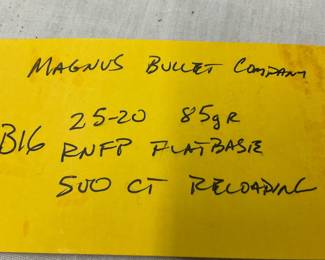 MAGNUS BULLET COMPANY
25-20 85gR
B16
RNFP FLATBASE
500 CT RELOADING